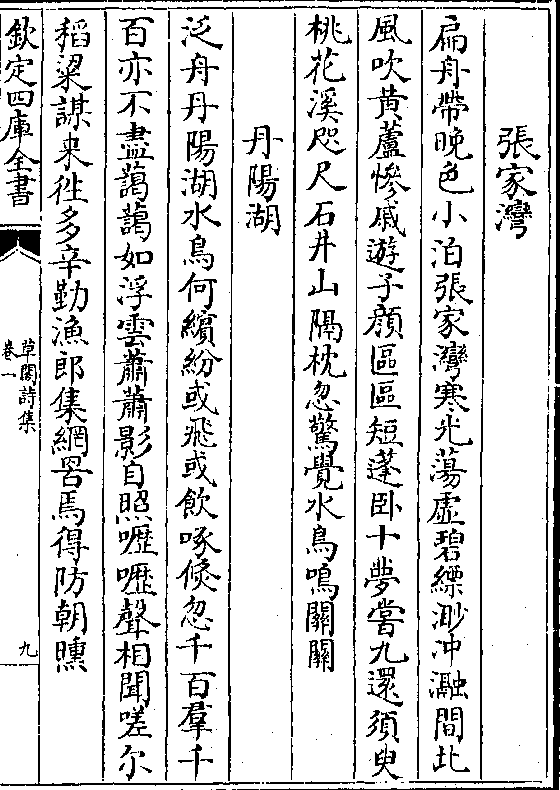 張家灣
扁舟帶晚色小泊張家灣寒光蕩虛碧縹渺冲瀜間北
風吹黃蘆慘戚遊子顔區區短蓬卧十夢嘗九還須臾
桃花溪咫尺石井山隔枕忽驚覺水鳥鳴關關
丹陽湖
泛舟丹陽湖水鳥何繽紛或飛或飲啄倐忽千百羣千
百亦不盡藹藹如浮雲蕭蕭影自照嚦嚦聲相聞嗟尔
稻粱謀来徃多辛勤漁郎集網罟焉得防朝曛
欽定四庫全書
草閣詩集
卷一
九